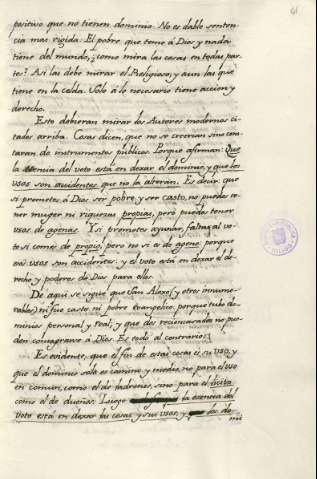 61
positivo que no tienen dominio. No es dable senten-
cia mas rigida. El pobre que teme á Dios y nada
tiene del mundo, ¿como mira las casas en todas par-
tes? Asi las debe mirar el Religioso; y aun las que
tiene en la celda. Solo á lo necesario tiene accion y
derecho.
Esto debieran mirar los Autores modernos ci-
tados arriba. Cosas dicen, que no se creerian sino cons-
taran de instrumentos publicos. Porque afirman: Que
la esencia del voto está en dexar el dominio, y que los
usos son accidentes que no la alteran. Es decir: que
si prometes á Dios ser pobre y ser casto, no puedes te-
ner muger ni riquezas propias, pero puedes tener
usos de agenas. Y si prometes ayunar, faltas al vo-
to si comes de propio, pero no si es de ageno, porque
esos usos son accidentes: y el voto está en dexar el de-
recho y poderes de Dios para ello.
De aqui se sigue que San Alexo (y otros innume-
rables) ni fue casto ni pobre evangelico, porque tubo do-
minios personal y real; y que dos reciencasados no pue-
den consagrarse á Dios. Es todo al contrario.
Es evidente, que el fin de estas cosas es su uso, y
que el dominio solo es camino y medio, no para el uso
en comun, como el de ladrones, sino para el licito
como el de dueños. Luego la esencia del
voto está en dexar las cosas y sus usos, y los do-